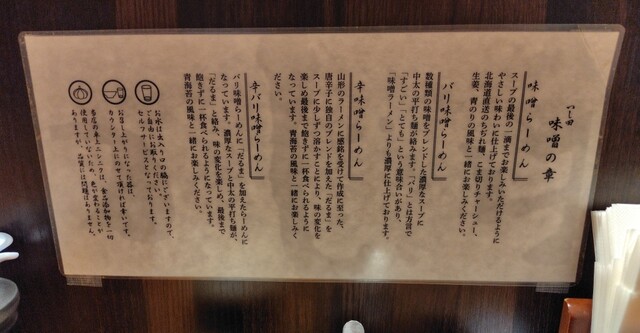 いし田
味噌の章
味噌らーめん
スープの最後の一滴までお楽しみいただけるように
やさしい味わいに仕上げております。
北海道直送のちぢれ麺、こま切りチャーシュー、
生姜、青のりの風味と一緒にお楽しみください。
バリ味噌らーめん
数種類の味噌をブレンドした濃厚なスープに
中太の平打ち麺が絡みます。「バリ」とは方言で
「すごい」「とても」という意味合いがあり、
「味噌ラーメン」よりも濃厚に仕上げております。
辛味噌らーめん
山形のラーメンに感銘を受けて作成に至った、
唐辛子に独自のブレンドを加えた「だるま」を
スープに少しずつ溶かすことにより、味の変化を
楽しめ最後まで飽きずに一杯食べられるように
なっています。青海苔の風味と一緒にお楽しみく
ださい。
辛バリ味噌らーめん
バリ味噌らーめんに「だるま」を加えたらーめんに
なっています。濃厚なスープと中太の平打ち麺が、
「だるま」と絡み、味の変化を楽しめ、最後まで
飽きずに一杯食べられるようになっています。
青海苔の風味と一緒にお楽しみください。
お水は出入り口の脇にございますので、
ご自由にお取りください。
セルフサービスとなっております。
お召し上がりになった器は、
カウンター上にのせて頂ければ幸いです。
当店の卓上ニンニクは、食品添加物を一切
使用していないため、色が変わることが
ありますが、品質には問題はありません。